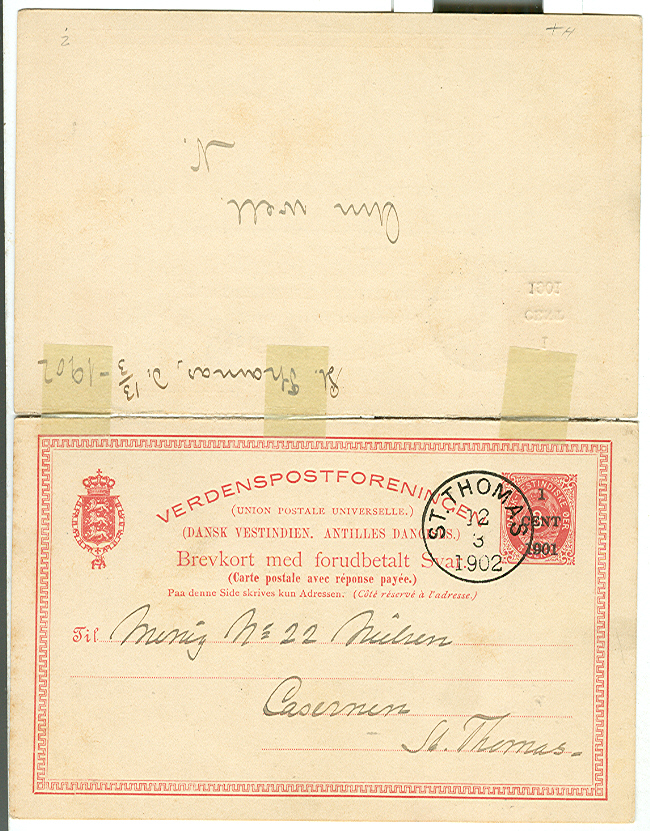 VERDENSPOSTFORENINGEN
(UNION POSTALE UNIVERSELLE.)
(DANSK VESTINDIEN. ANTILLES DANOISES.)
Brevkort med forudbetalt Svar.
(Carte postale avec réponse payée.)
Paa denne Side skrives kun Adressen. (Côté réservé à l'adresse.)
ST. THOMAS
12
3
1902
1
CENT
1901
Til Menig No 22 Nielsen
Casernen
St. Thomas
St. Thomas, d. 13/3-1902
N.
1
CENT
1901